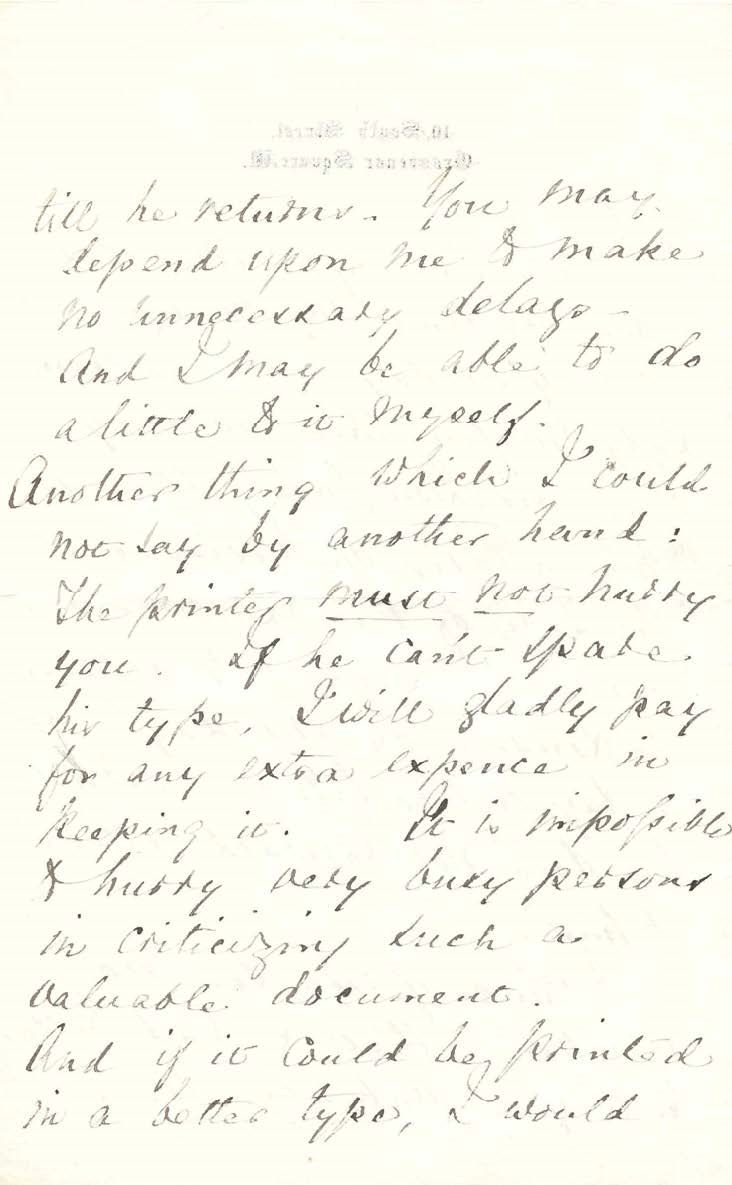 10, South Street,
Grosvenor Square. W.
till he returns. You may
depend upon me to make
no unnecessary delays –
And I may be able to do
a little to it myself.
Another thing which I could
not say by another hand:
The printer must not hurry
you. If he can't spare
his type, I will gladly pay
for any extra expence in
keeping it. It is impossible
to hurry very busy persons
in criticizing such a
valuable document.
And if it could be printed
in a better type, I would